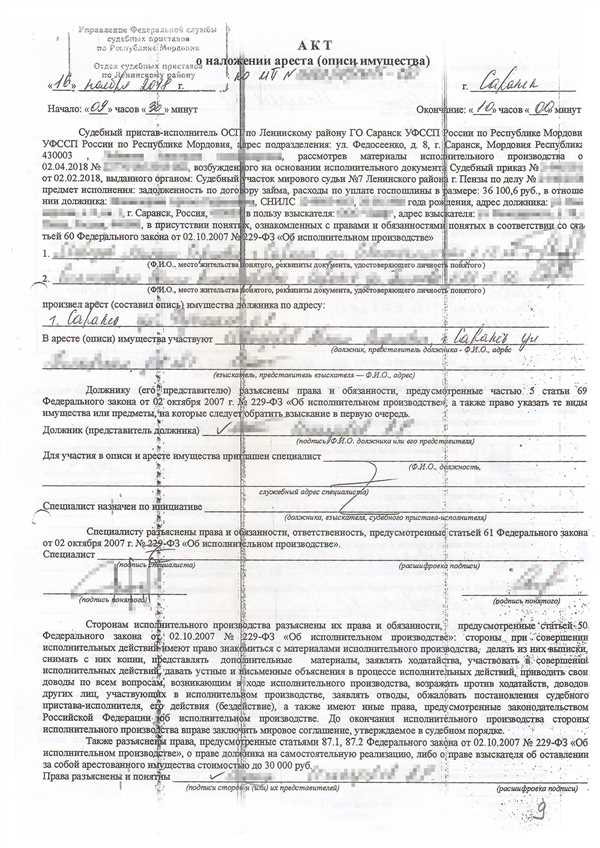 Управление Федеральной службы
судебных приставов
по Республике Мордовия
Отдел судебных приставов
по Ленинскому району
АКТ
о наложении ареста (описи имущества)
«16» ноября 2018 г.
по ИП №
г. Саранск
Начало: «09» часов «30» минут
Окончание: «10» часов «00» минут
Судебный пристав-исполнитель ОСП по Ленинскому району ГО Саранск УФССП России по Республике Мордови
УФССП России по Республике Мордовия, адрес подразделения: ул. Федосеенко, д. 8, г. Саранск, Мордовия Республика
430003 , рассмотрев материалы исполнительного производства о
02.04.2018 № , возбужденного на основании исполнительного документа: Судебный приказ №
от 02.02.2018, выданного органом: Судебный участок мирового судьи №7 Ленинского района г. Пензы по делу №
предмет исполнения: задолженность по договору займа, расходы по уплате госпошлины в размере: 36 100,6 руб., в отноше
нии должника: , СНИЛС года рождения, адрес должника:
, г. Саранск, Россия, в пользу взыскателя: , адрес взыскателя:
, в присутствии понятых, ознакомлен с правами и обязанностями понятых в соответствии со ста
тьей 60 Федерального закона от 02.10.2007 № 229-ФЗ «Об исполнительном производстве»
1.
(Ф.И.О., место жительства понятого, реквизиты документа, удостоверяющего личность понятого )
2.
(Ф.И.О., место жительства понятого, реквизиты документа, удостоверяющего личность понятого )
произвел арест (составил опись) имущества должника по адресу:
г. Саранск
В аресте (описи) имущества участвуют г. Саранск ул
(должник, представитель должника - Ф.И.О., адрес
(взыскатель, представитель взыскателя — Ф.И.О., адрес)
Должнику (его представителю) разъяснены права и обязанности, предусмотренные частью 5 статьи 69
Федерального закона от 02 октября 2007 г. № 229-ФЗ «Об исполнительном производстве», а также право указать те виды
имущества или предметы, на которые следует обратить взыскание в первую очередь.
Должник (представитель должника)
(подпись, Ф.И.О. должника или его представителя)
Для участия в описи и аресте имущества приглашен специалист
(Ф.И.О., должность,
служебный адрес специалиста)
Специалист назначен по инициативе
(должника, взыскателя, судебного пристава-исполнителя)
Специалисту разъяснены права и обязанности, ответственность, предусмотренные статьей 61 Федерального закона
от 02 октября 2007 г. № 229-ФЗ «Об исполнительном производстве».
Специалист
(подпись специалиста)
(расшифровка подписи)
(подпись понятого)
(подпись понятого)
Сторонам исполнительного производства разъяснены их права и обязанности, предусмотренные статьей 50
Федерального закона от 02.10.2007 № 229-ФЗ «Об исполнительном производстве»: стороны при совершении
исполнительных действий имеют право знакомиться с материалами исполнительного производства, делать из них выписки,
снимать с них копии, представлять дополнительные материалы, заявлять ходатайства, участвовать в совершении
исполнительных действий, давать устные и письменные объяснения в процессе исполнительных действий, приводить свои
доводы по всем вопросам, возникающим в ходе исполнительного производства, возражать против ходатайств, доводов
других лиц, участвующих в исполнительном производстве, заявлять отводы, обжаловать постановления судебного
пристава-исполнителя, его действия (бездействие), а также имеют иные права, предусмотренные законодательством
Российской Федерации об исполнительном производстве. До окончания исполнительного производства стороны
исполнительного производства вправе заключить мировое соглашение, утверждаемое в судебном порядке.
Также разъяснены права, предусмотренные статьями 87.1, 87.2 Федерального закона от 02.10.2007 № 229-ФЗ «Об
исполнительном производстве», о праве должника на самостоятельную реализацию, либо о праве взыскателя об оставлении
за собой арестованного имущества стоимостью до 30 000 руб.
Права разъяснены и понятны
(подписи сторон и (или) их представителей)
(расшифровка подписи)
9